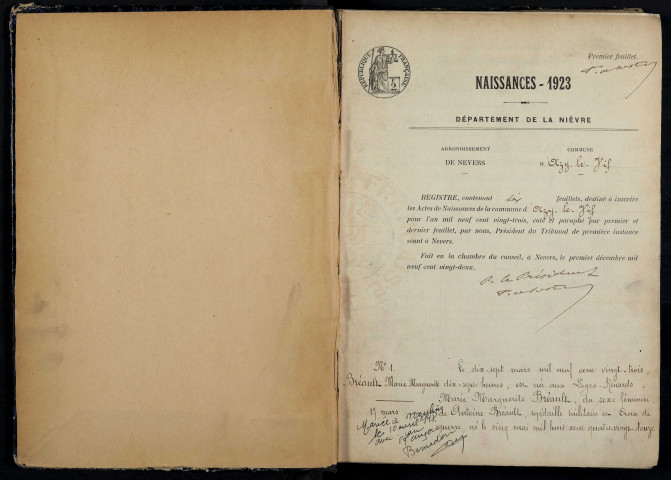 Premier feuillet.
RÉPUBLIQUE FRANÇAISE
2
NAISSANCES - 1923
DÉPARTEMENT DE LA NIÈVRE
ARRONDISSEMENT
DE NEVERS
COMMUNE
d'Azy-le-Vif
REGISTRE, contenant six feuillets, destiné à inscrire
les Actes de Naissances de la commune d'Azy-le-Vif
pour l'an mil neuf cent vingt-trois, coté et paraphé par premier et
dernier feuillet, par nous, Président du Tribunal de première instance
séant à Nevers.
Fait en la chambre du conseil, à Nevers, le premier décembre mil
neuf cent vingt-deux.
P. le Président
N° 1.
Bréault Marie Marguerite
17 mars
Mariée à Moulins
le 10 avril
avec
François
Bernadon
Le dix-sept mars mil neuf cent vingt-trois,
dix-sept heures, est née aux Loges-Renards,
Marie Marguerite Bréault, du sexe féminin
de Antoine Bréault, médaillé militaire - Croix de
guerre, né le vingt mai mil huit cent quatre-vingt-douze